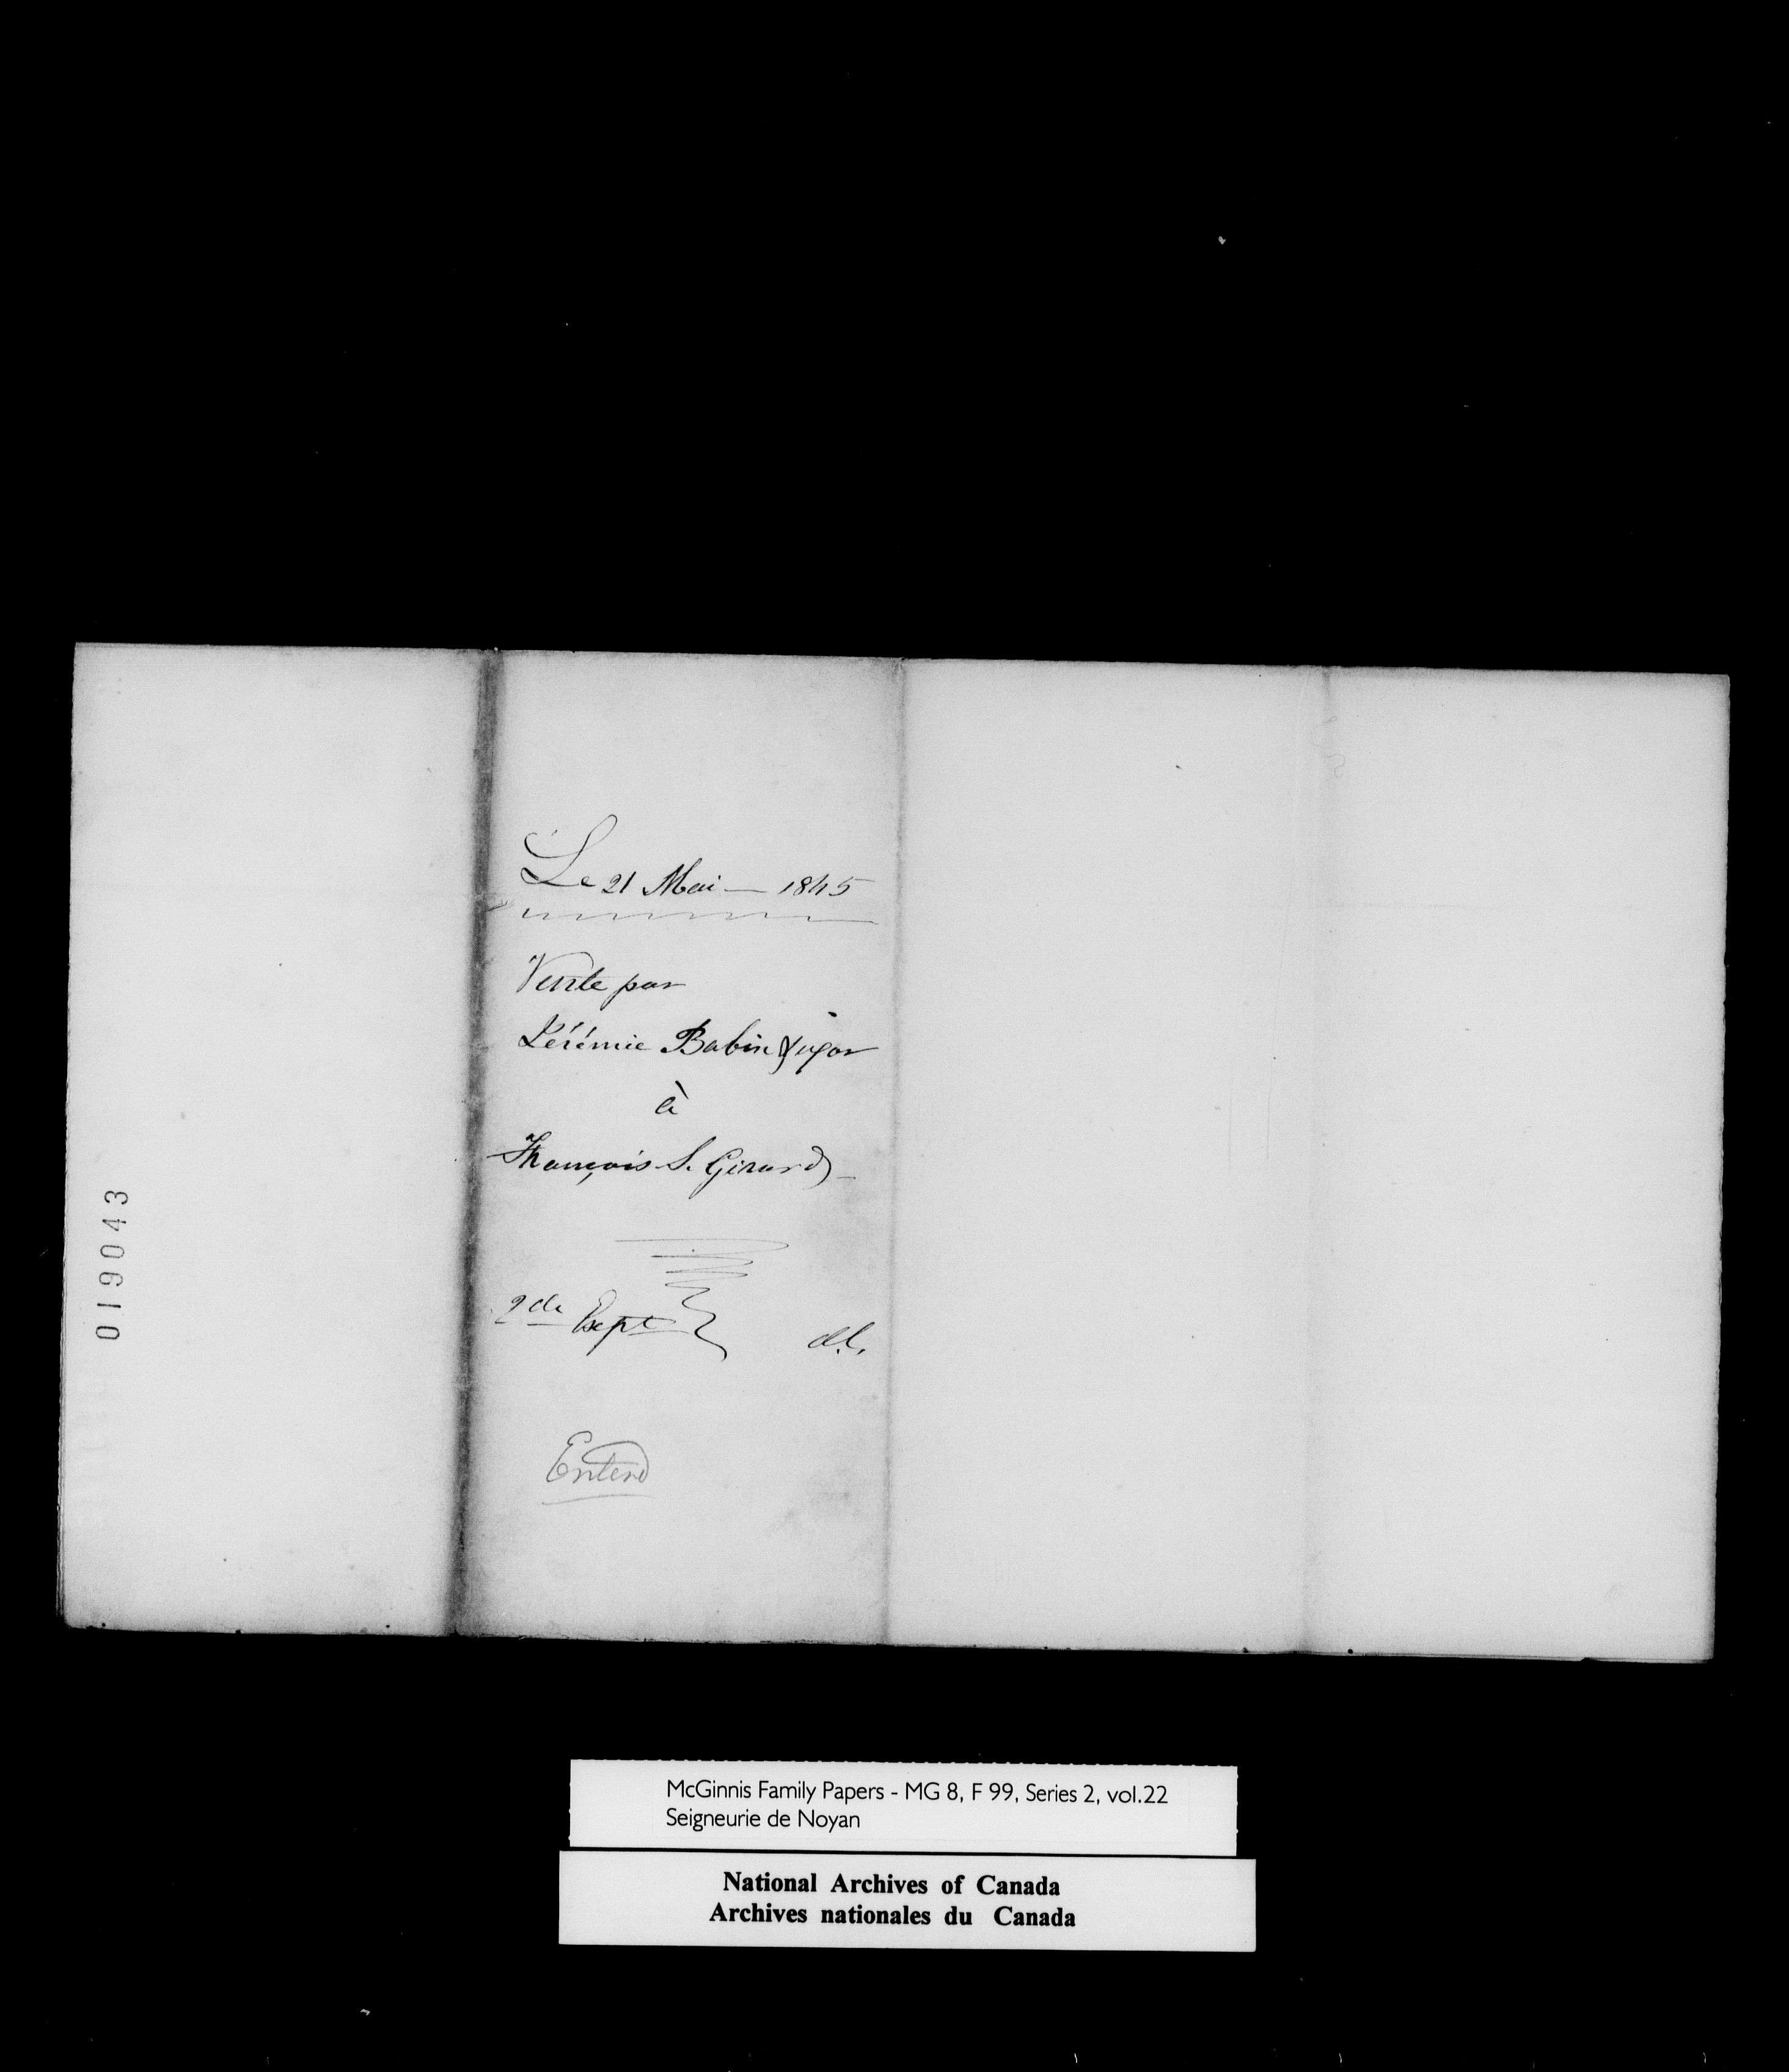 Le 21 Mai — 1845
Vente par
Jérémie Babin & uxor
à
François S. Girard
2de Expt
d.l.
Enterd
019043
McGinnis Family Papers - MG 8, F 99, Series 2, vol.22
Seigneurie de Noyan
National Archives of Canada
Archives nationales du Canada